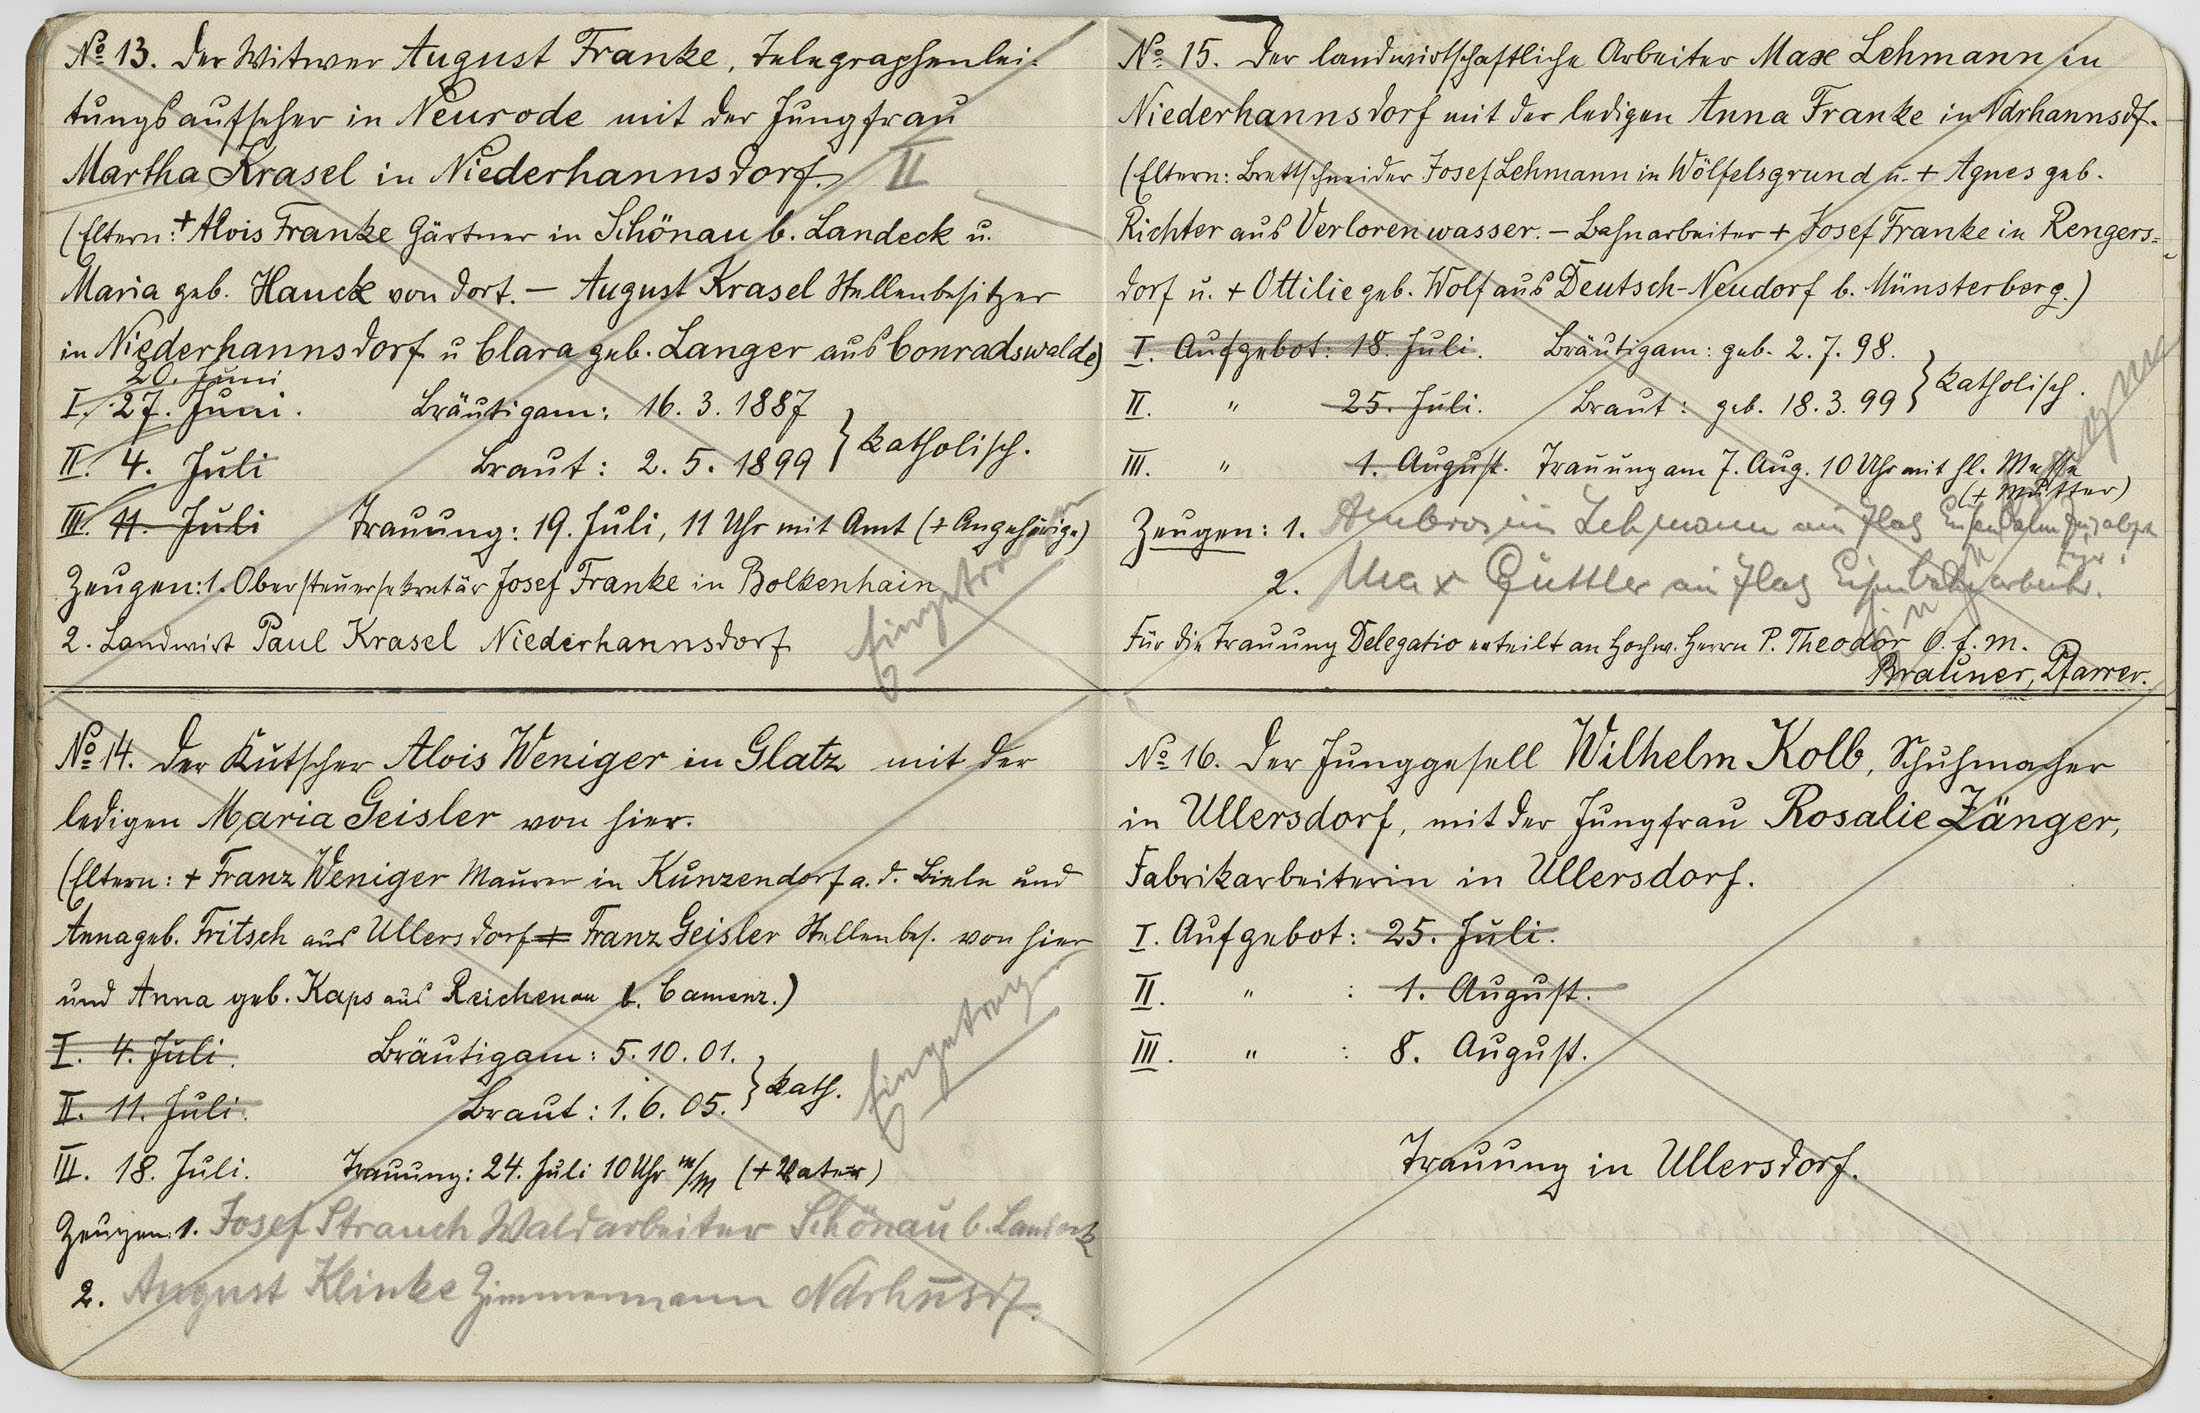 No 13. Der Witwer August Franke, Telegraphenlei-
tungsaufseher in Neurode mit der Jungfrau
Martha Krasel in Niederhannsdorf. II
(Eltern: + Alois Franke Gärtner in Schönau b. Landeck u.
Maria geb. Hauck von dort. – August Krasel Stellenbesitzer
in Niederhannsdorf u Clara geb. Langer aus Conradswalde)
20. Juni
I. 27. Juni. Bräutigam: 16. 3. 1887
II. 4. Juli Braut: 2. 5. 1899 } katholisch.
III. 11. Juli Trauung: 19. Juli, 11 Uhr mit Amt (+ Angehörige)
Zeugen: 1. Obersteuersekretär Josef Franke in Bolkenhain
2. Landwirt Paul Krasel Niederhannsdorf
Eingetragen
No 14. Der Kutscher Alois Weniger in Glatz mit der
ledigen Maria Geisler von hier.
(Eltern: + Franz Weniger Maurer in Kunzendorf a. d. Biele und
Anna geb. Fritsch aus Ullersdorf + Franz Geisler Stellenbes. von hier
und Anna geb. Kaps aus Reichenau b. Camenz.)
I. 4. Juli. Bräutigam: 5. 10. 01.
II. 11. Juli. Braut: 1. 6. 05. } kath.
III. 18. Juli. Trauung: 24. Juli 10 Uhr m/M (+ Vater)
Zeugen: 1. Josef Strauch Waldarbeiter Schönau b. Landeck
2. August Klinke Zimmermann Ndrhnsdf.
Eingetragen
No 15. Der landwirtschaftliche Arbeiter Max Lehmann in
Niederhannsdorf mit der ledigen Anna Franke in Ndrhannsdf.
(Eltern: Brettschneider Josef Lehmann in Wölfelsgrund u. + Agnes geb.
Richter aus Verlorenwasser. – Bahnarbeiter + Josef Franke in Rengers=
dorf u. + Ottilie geb. Wolf aus Deutsch-Neudorf b. Münsterberg.)
I. Aufgebot: 18. Juli. Bräutigam: geb. 2. 7. 98.
II. " 25. Juli. Braut: geb. 18. 3. 99 } katholisch.
III. " 1. August. Trauung am 7. Aug. 10 Uhr mit hl. Messe
(+ Mutter)
Zeugen: 1. Lehmann
2. Max Güttler Eisenbahnarbeiter.
Eingetragen
Für die Trauung Delegatio erteilt an Hochw. Herrn P. Theodor O. f. m.
Brauner, Pfarrer.
No 16. Der Junggesell Wilhelm Kolb, Schuhmacher
in Ullersdorf, mit der Jungfrau Rosalie Zänger,
Fabrikarbeiterin in Ullersdorf.
I. Aufgebot: 25. Juli.
II. " : 1. August.
III. " : 8. August.
Trauung in Ullersdorf.